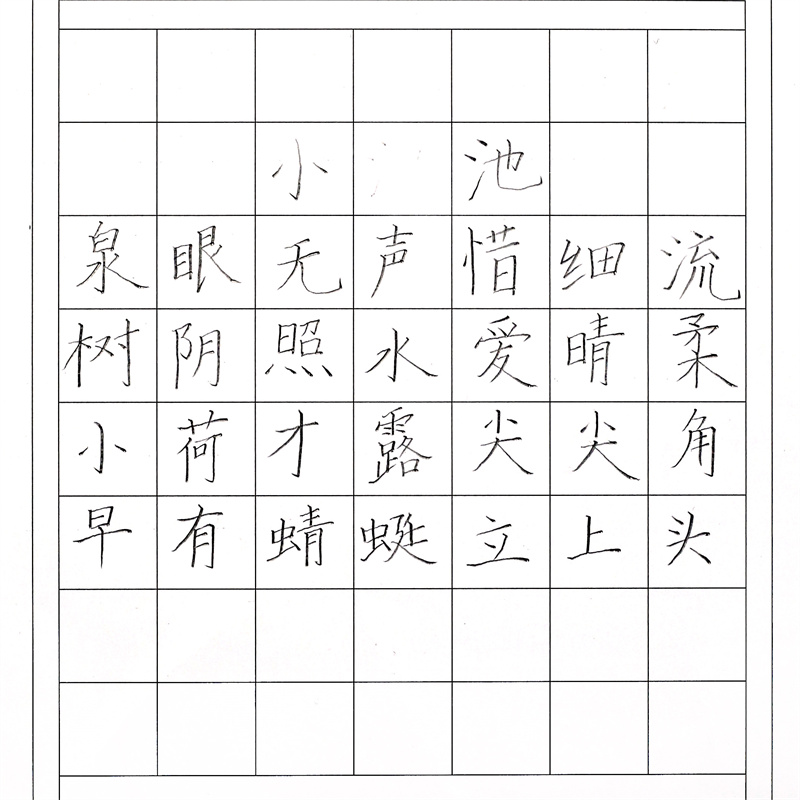 小池
泉眼无声惜细流
树阴照水爱晴柔
小荷才露尖尖角
早有蜻蜓立上头